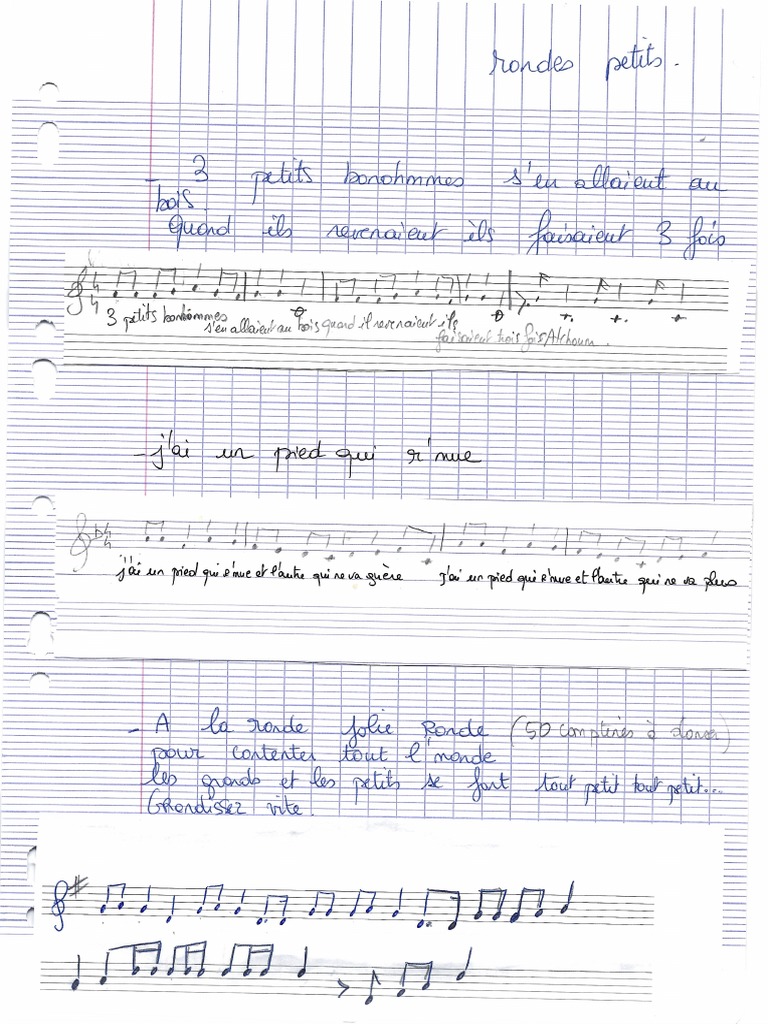 rondes petits.
- 3 petits bonohmmes s'en allaient au
bois.
Quand ils revenaient ils faisaient 3 fois
3 petits bonhommes s'en allaient au bois quand il revenaient ils
faisaient trois fois Atchoum.
- j'ai un pied qui r'mue
j'ai un pied qui r'mue et l'autre qui ne va guère j'ai un pied qui r'mue et l'autre qui ne va plus
- A la ronde jolie Ronde (50 comptines à danser)
pour contenter tout l'monde
les grands et les petits se font tout petit tout petit...
Grandissez vite.